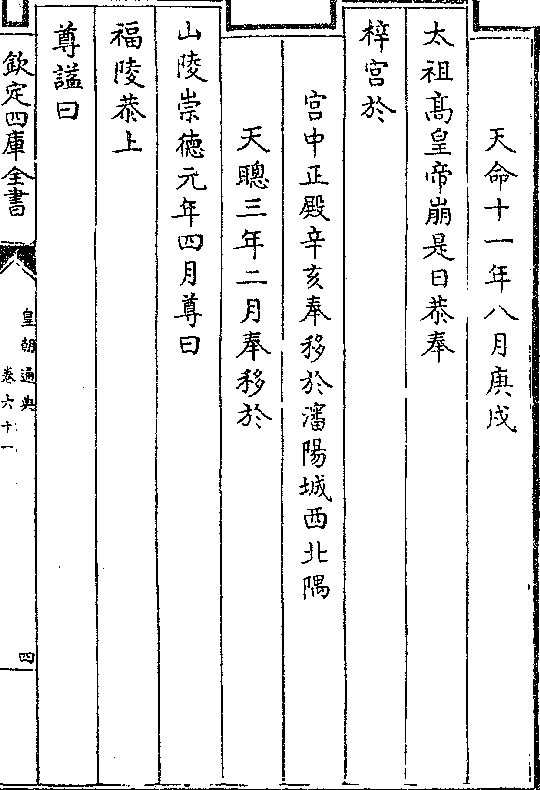 天命十一年八月庚戌
太祖髙皇帝崩是日恭奉
梓宫於
宫中正殿辛亥奉移於瀋陽城西北隅
天聰三年二月奉移於
山陵崇徳元年四月尊曰
福陵恭上
尊諡曰
欽定四庫全書
皇朝通典
卷六十一
四